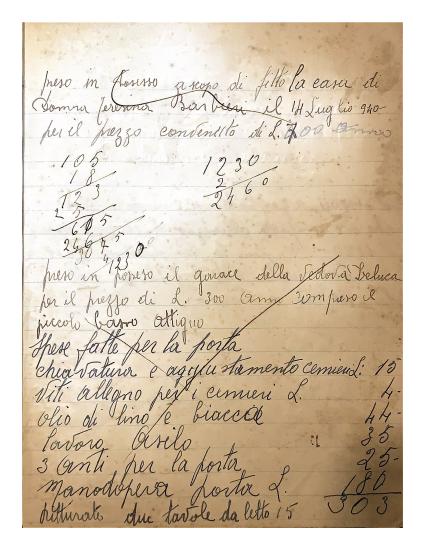 preso in possesso a scopo di fitto la casa di
Donna Barbieri il 14 Luglio 940
per il prezzo convenuto di L. 700 anno
105 1230
18 2
123 2460
25
615
2467 5
1230
preso in possesso il della vedova Beluca
per il prezzo di L. 300 anni compreso il
piccolo basso attiguo
Spese fatte per la porta
chiavatura e aggiustamento cernieri L: 15
Viti allegno per i cernieri L. 4-
olio di lino e biacca 44-
lavoro Asilo il 35
3 Anti per la porta 25-
Manodopera porta L. 180
pitturato due tavole da letto 15 303